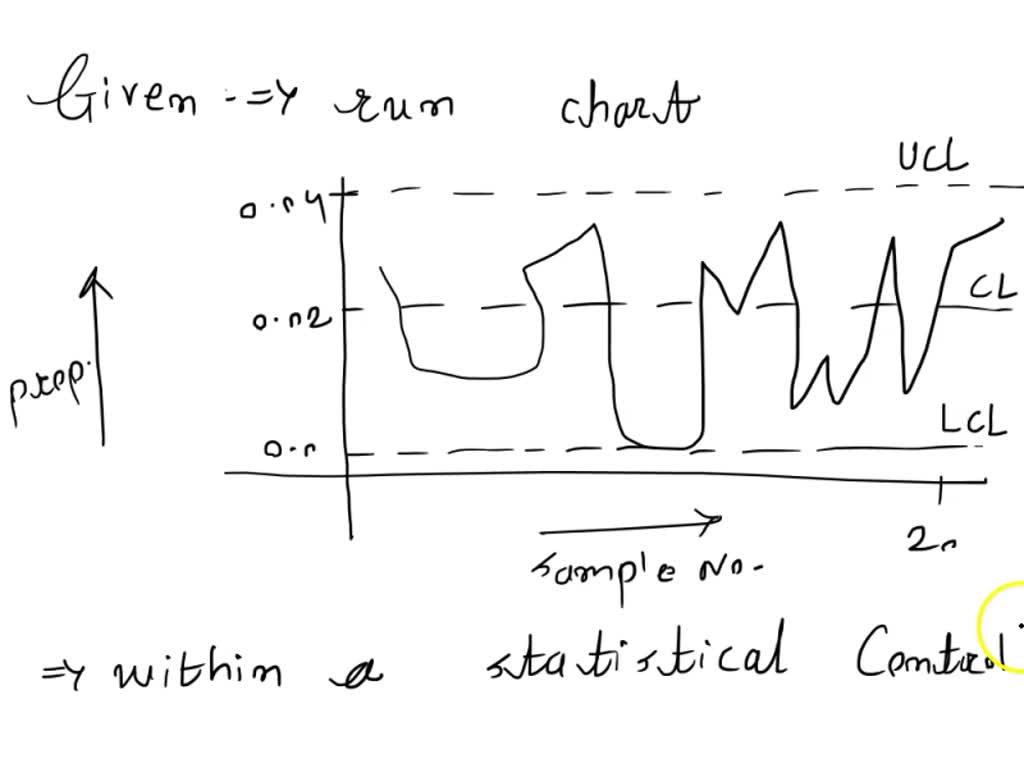 Given => run chart
UCL
0.04
CL
0.02
prop.
LCL
0.0
20
sample No.
=> within a statistical Control